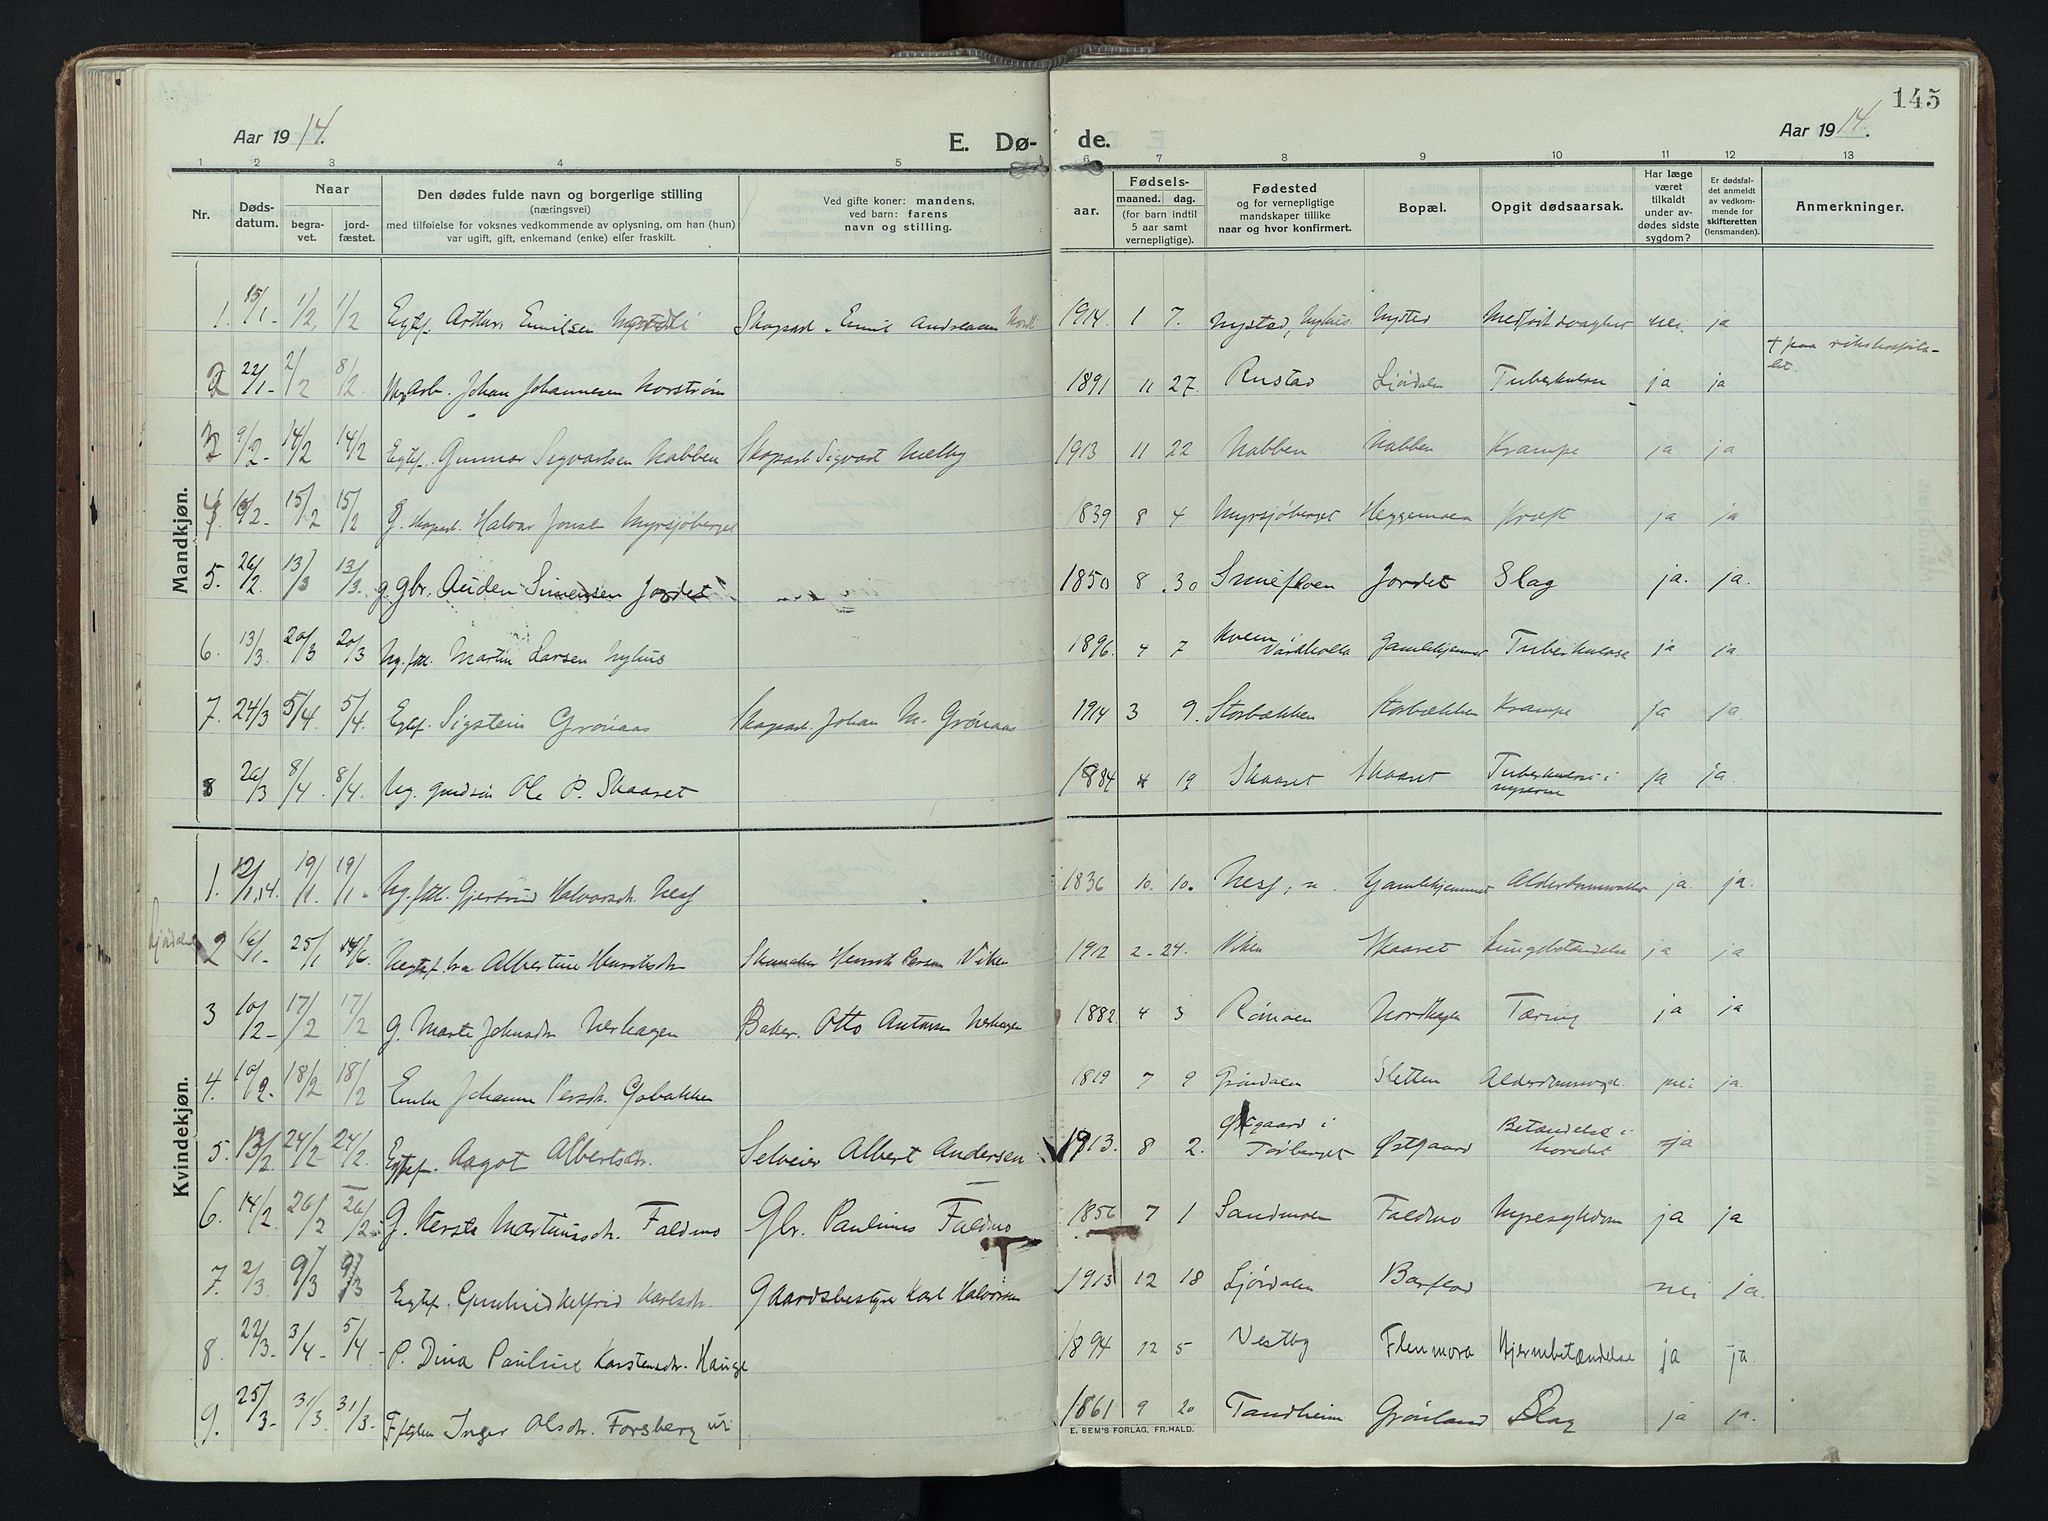 145
Aar 1914.
E. Dø-
de.
Aar 1914.
1 2 3 4 5 6 7 8 9 10 11 12 13
Nr.
Døds-
datum.
Naar
begra-
vet.
jord-
fæstet.
Den dødes fulde navn og borgerlige stilling
(næringsvei)
med tilføielse for voksnes vedkommende av oplysning, om han (hun)
var ugift, gift, enkemand (enke) eller fraskilt.
Ved gifte koner: mandens,
ved barn: farens
navn og stilling.
Fødsels-
aar.
maaned. dag.
(for barn indtil
5 aar samt
vernepligtige).
Fødested
og for vernepligtige
mandskaper tillike
naar og hvor konfirmert.
Bopæl.
Opgit dødsaarsak.
Har læge
været
tilkaldt
under av-
dødes sidste
sygdom?
Er dødsfal-
det anmeldt
av vedkom-
mende for
skifteretten
(lensmanden).
Anmerkninger.
Mandkjøn.
1. 15/1- 1/2, 1/2 Egtef. Arthur Emilsen Skogsarb. Emil Andreasen 1914. 1 7. Nystad, Nyhus Nysted Medfødt svaghet nei. ja
2 22/1- 2/2 8/2. Ug. Arb. Johan Johannesen Norstrøm 1891 11 27. Rustad Ljørdalen Tuberkulose ja ja + paa rikshospita-
let.
3 9/2- 14/2 14/2 Egtef. Gunnar Sigvartsen Nabben Skogsarb Sigvart Melby 1913 11 22 Nabben Nabben Krampe ja ja
4 15/2 15/2 G. skogsarb. Halvor Jonsen Myrsjøberget 1839 8 4 Myrsjøberget Heggemoen Kræft ja ja
5. 26/2. 13/3 13/3. g. gbr. Auden Simensen Jordet 1850 8 30 Smefloen Jordet Slag ja. ja.
6. 13/3. 20/3 20/3 Ug. ftl. Martin Larsen Nyhus 1896. 4 7 Kvem i Vardholla Gamlehjemmet Tuberkulose ja ja
7. 24/3 5/4. 5/4. Egtef. Sigstein Grønaas Skogsarb. Johan M. Grønaas 1914 3 9. Storbækken Storbækken Krampe ja ja
8 26/3 8/4. 8/4. Ug. gmdsøn Ole P. Skaaret 1884 4 19 Skaaret Skaaret Tuberkulose i
nyrerne ja ja.
Kvindekjøn.
1. 12/1,14. 19/1. 19/1- Ug. ftl. Gjertrud Halvorsdr. Nesf 1836 10. 10. Nesf, n. Gamlehjemmet Alderdomssvakhet ja. ja.
Ljørdalen
2 16/1- 25/1 14/6. Uegtef. bn Albertine Henriksdr Skomaker Henrik Persen Viken 1912 2- 24. Viken Skaaret Lungebetændelse ja ja
3 10/2- 17/2 17/2 G. Marte Johnsdr Nerhagen Baker. Otto Antonsen Nerhagen 1882. 4 3 Rømoen Nordhagen Tæring ja ja
4. 10/2- 18/2 18/2 Enke Johanne Persdr. Gobakken 1819 7 9 Grøndalen Sletten Alderdomssvagh. nei ja.
5. 13/2 24/2 24/2. Egtef. Aagot Albertsdr. Selveier Albert Andersen 1913. 8 2. Østgaard i
Tørberget Østgaard Betændelse i
hovedet ja
6. 14/2. 26/2 26/2- G. Kersti Martinusdr. Faldmo Gbr. Paulinus Faldmo 1856 7 1 Sandmoen Faldmo Nyresykdom ja ja
7. 2/3. 9/3 9/3 Egtef. Gunhild Helfrid Karlsdr. Gaardsbestyrer Karl Halvorsen 1913 12 18 Ljørdalen Barflod nei ja.
8. 22/3- 3/4- 5/4- P. Dina Pauline Karstensdr. Hauge 1894 12 5 Vestby Flenmora Hjernebetændelse ja ja.
9. 25/3- 31/3. 31/3. Inger Olsdr. Forsberg 1861 9 20 Tandheim Grønland Slag ja ja.
E. SEM'S FORLAG, FR.HALD.